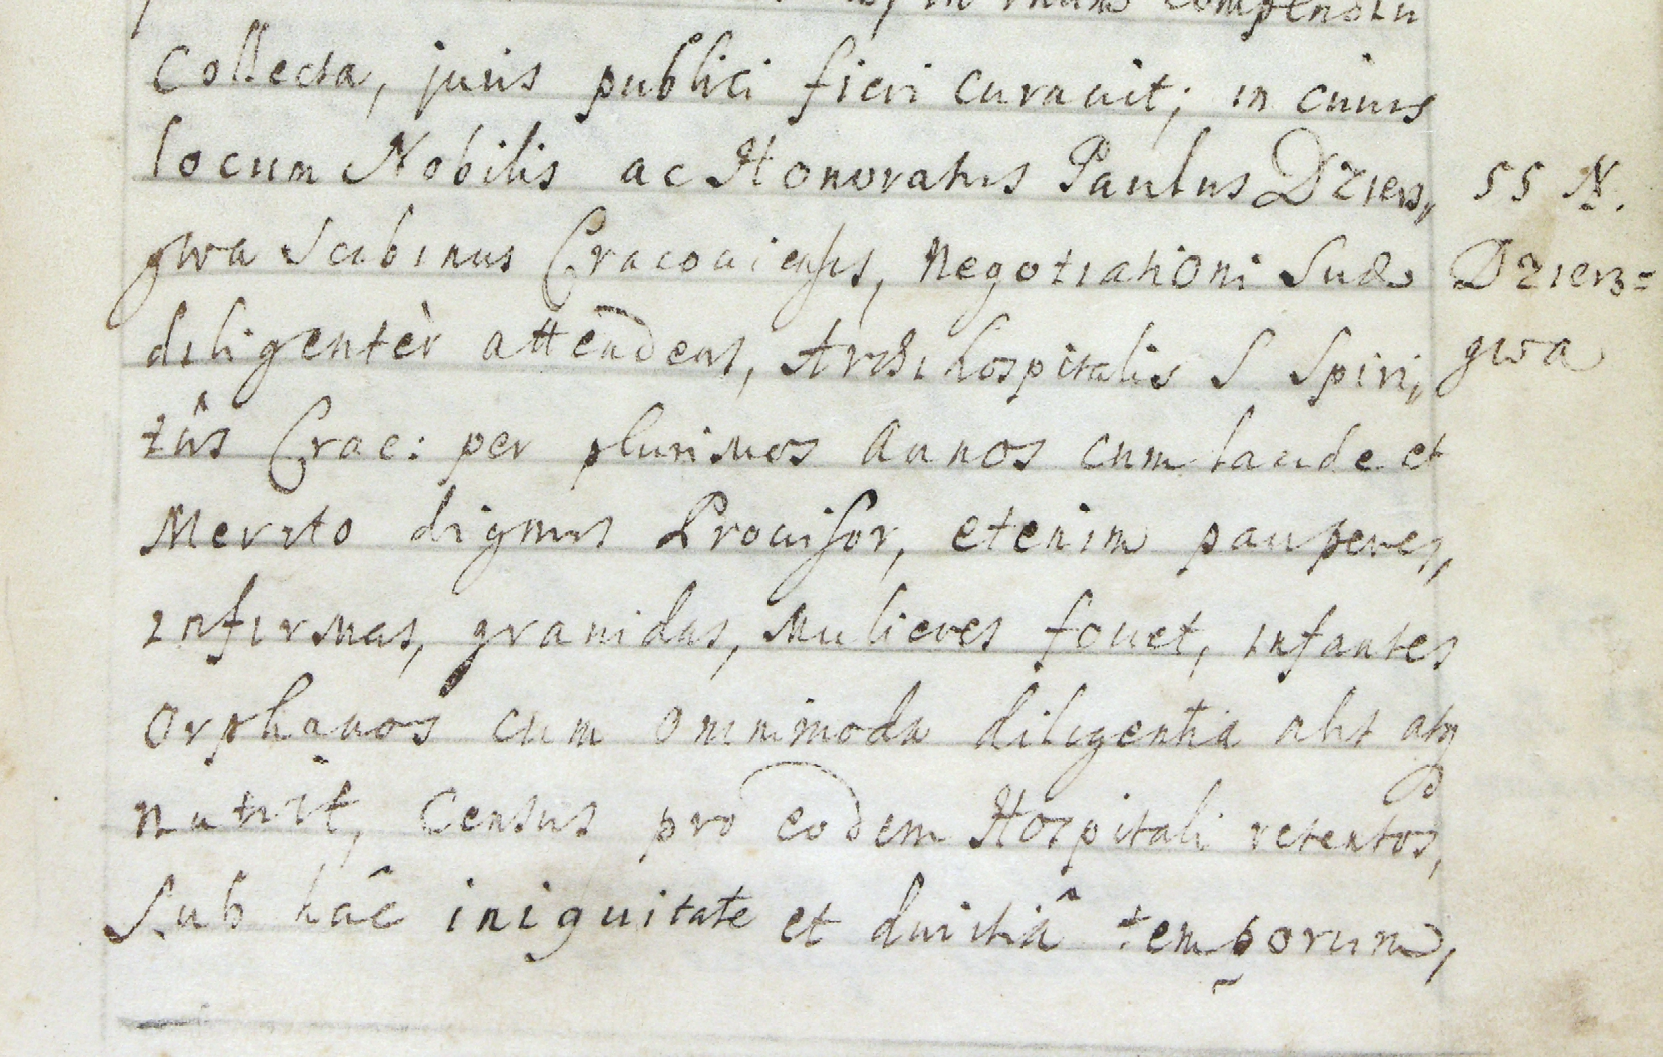 in unum compendiu
Collecta, juris publici fieri curauit; in cuius
locum Nobilis ac Honoratus Paulus Dziers,,
gwa Scabinus Cracouiensis, Negotiationi suæ
diligentèr attendens, Archihospitalis S Spiri,,
tûs Crac: per plurimos annos cum laude et
Merito dignus Prouisor, etenim pauperes,
infirmas, grauidas, Mulieres fouet, infantes
Orphanos cum omnimoda diligentia alit atq
nutrit, Census pro eodem Hospitali retentos,
Sub hâc iniquitate et duritiâ temporum,
55 N.
Dziers=
gwa